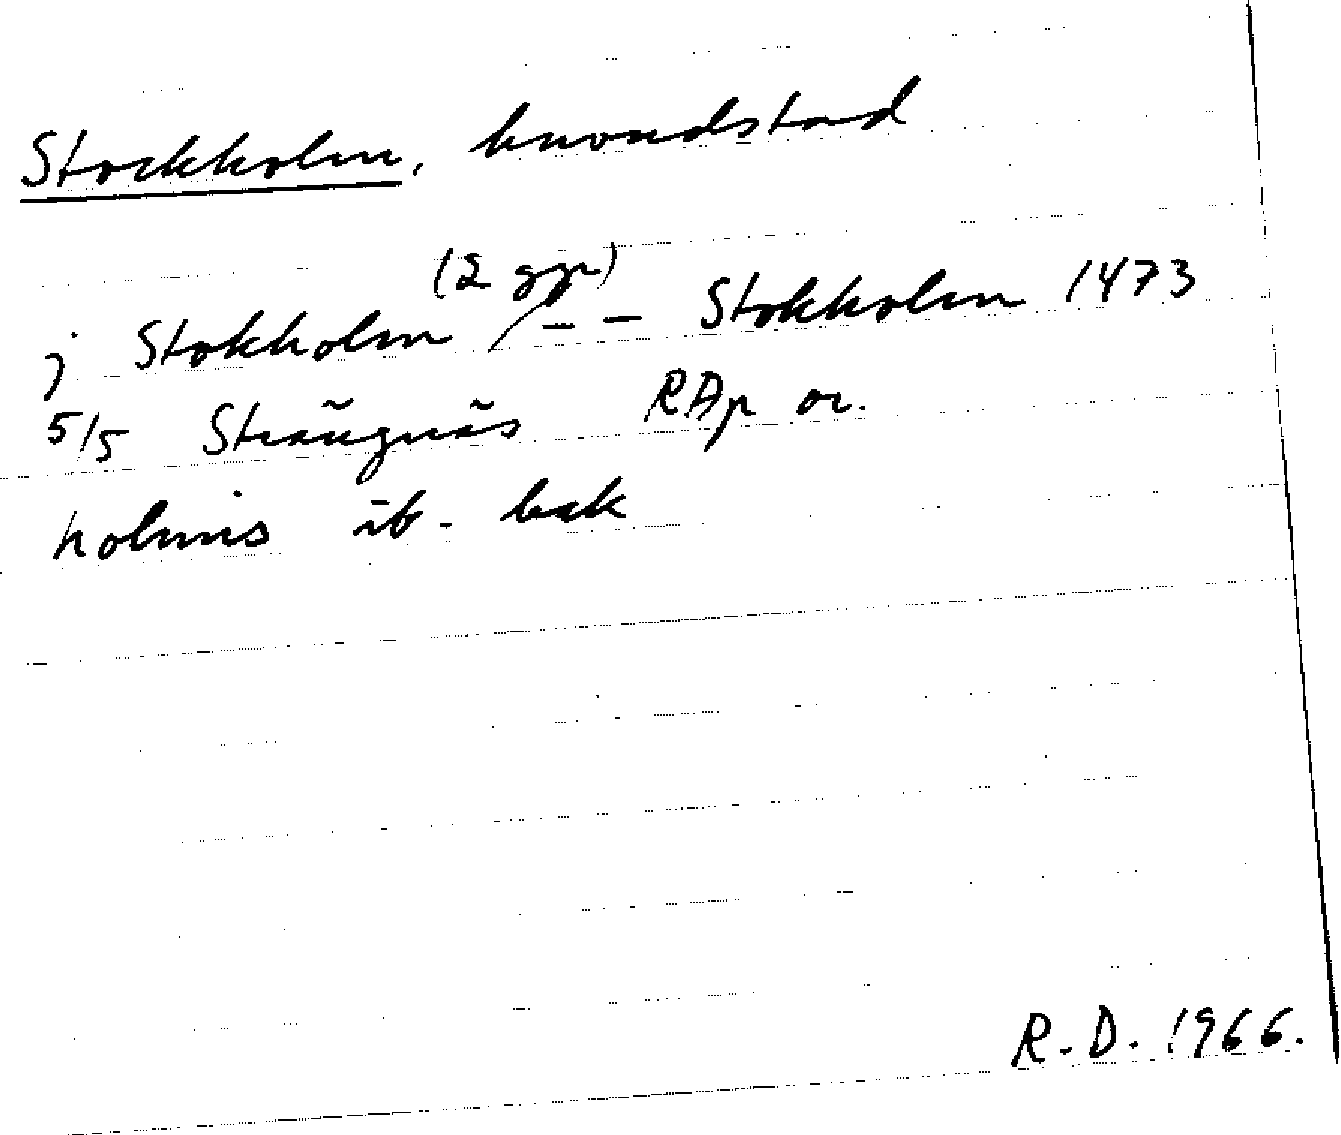 Stockholm, huvudstad
(2 ggr)
j Stokholm / – – Stokholm 1473
5/5 Strängnäs RAp or.
holmis ib. bak
R.D. 1966.